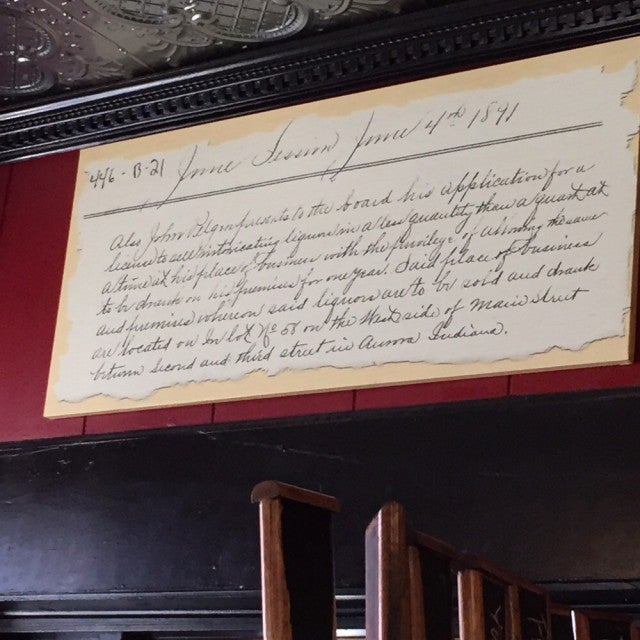 446-B-21 June Session June 4th 1891
Also John presents to the board his application for a
license to sell intoxicating liquors in a less quantity than a quart at
a time at his place of business with the privilege of allowing the same
to be drank on his premises for one year. Said place of business
and premises whereon said liquors are to be sold and drank
are located on In lot No 58 on the West side of Main Street
between Second and third street in Aurora Indiana.